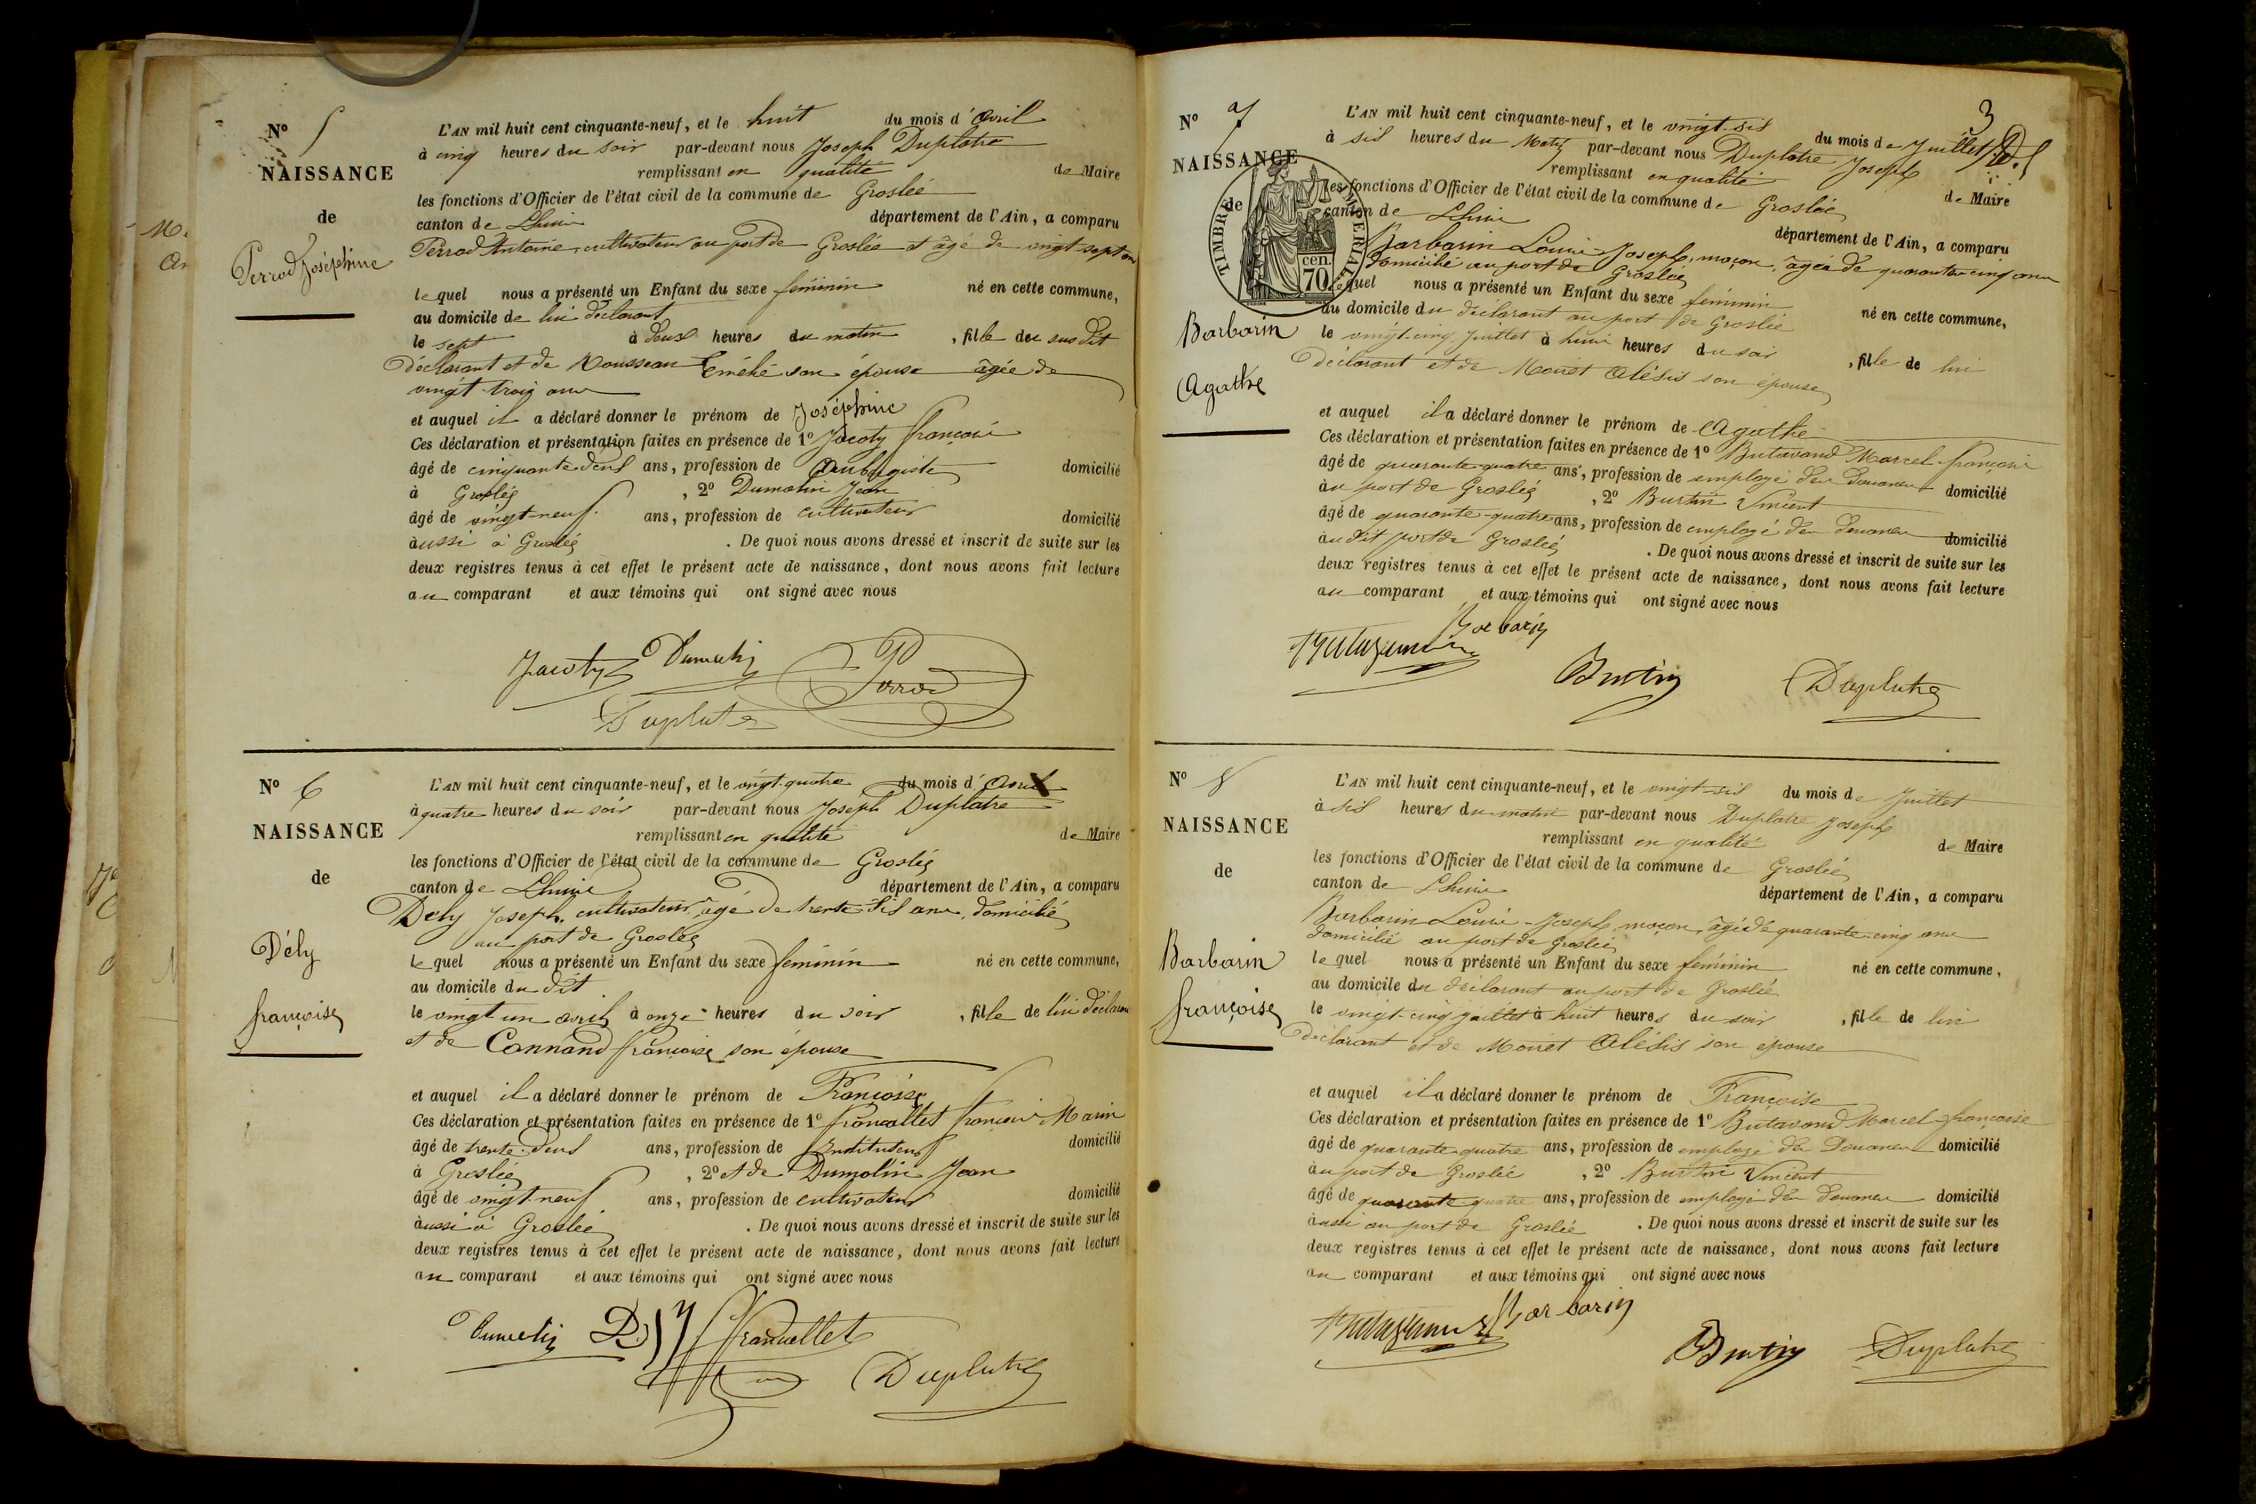 N° 5
NAISSANCE
de
Perrod Joséphine
L'AN mil huit cent cinquante-neuf, et le huit du mois d'avril
à cinq heures du soir par-devant nous Joseph Duplatre
remplissant en qualité de Maire
les fonctions d'Officier de l'état civil de la commune de Groslée
canton de Lhuis département de l'Ain, a comparu
Perrod Antoine, cultivateur au port de Groslée et âgé de vingt-sept ans
lequel nous a présenté un Enfant du sexe féminin né en cette commune,
au domicile de lui déclarant
le sept à deux heures du matin, fille du susdit
déclarant et de Rousseau son épouse âgée de
vingt trois ans
et auquel il a déclaré donner le prénom de Joséphine
Ces déclaration et présentation faites en présence de 1° Jacoty françois
âgé de cinquante deux ans, profession de Aubergiste domicilié
à Groslée, 2° Dumolin Jean
âgé de vingt-neuf ans, profession de cultivateur domicilié
aussi à Groslée. De quoi nous avons dressé et inscrit de suite sur les
deux registres tenus à cet effet le présent acte de naissance, dont nous avons fait lecture
au comparant et aux témoins qui ont signé avec nous
Jacoty Dumolin Perrod
Duplatre
N° 6
NAISSANCE
de
Dély
françoise
L'AN mil huit cent cinquante-neuf, et le vingt-quatre du mois d'avril
à quatre heures du soir par-devant nous Joseph Duplatre
remplissant en qualité de Maire
les fonctions d'Officier de l'état civil de la commune de Groslée
canton de Lhuis département de l'Ain, a comparu
Dely Joseph, cultivateur, âgé de trente six ans, domicilié
au port de Groslée
lequel nous a présenté un Enfant du sexe féminin né en cette commune,
au domicile du dit
le vingt un avril à onze heures du soir, fille de lui déclarant
et de Connand françoise son épouse
et auquel il a déclaré donner le prénom de Françoise
Ces déclaration et présentation faites en présence de 1° françois Marin
âgé de trente-deux ans, profession de Instituteur domicilié
à Groslée, 2° et de Dumolin Jean
âgé de vingt-neuf ans, profession de cultivateur domicilié
aussi à Groslée. De quoi nous avons dressé et inscrit de suite sur les
deux registres tenus à cet effet le présent acte de naissance, dont nous avons fait lecture
au comparant et aux témoins qui ont signé avec nous
Dumolin Dély
Duplatre
3
N° 7
NAISSANCE
de
TIMBRE IMPERIAL
70 cen.
Barbarin
Agathe
L'AN mil huit cent cinquante-neuf, et le vingt-six du mois de Juillet
à six heures du Matin par-devant nous Duplatre Joseph
remplissant en qualité de Maire
les fonctions d'Officier de l'état civil de la commune de Groslée
canton de Lhuis département de l'Ain, a comparu
Barbarin Louis-Joseph, maçon, âgée de quarante cinq ans
domicilié au port de Groslée
lequel nous a présenté un Enfant du sexe féminin né en cette commune,
au domicile du déclarant au port de Groslée
le vingt-cinq Juillet à heures du soir, fille de lui
déclarant et de Mouret Alésis son épouse
et auquel il a déclaré donner le prénom de Agathe
Ces déclaration et présentation faites en présence de 1° Butavand Marcel françois
âgé de quarante-quatre ans, profession de employé des Douanes domicilié
au port de Groslée, 2° Burtin Vincent
âgé de quarante-quatre ans, profession de employé des douanes domicilié
au dit port de Groslée. De quoi nous avons dressé et inscrit de suite sur les
deux registres tenus à cet effet le présent acte de naissance, dont nous avons fait lecture
au comparant et aux témoins qui ont signé avec nous
Barbarin
Burtin Duplatre
N° 8
NAISSANCE
de
Barbarin
françoise
L'AN mil huit cent cinquante-neuf, et le vingt-six du mois de Juillet
à six heures du matin par-devant nous Duplatre Joseph
remplissant en qualité de Maire
les fonctions d'Officier de l'état civil de la commune de Groslée
canton de Lhuis département de l'Ain, a comparu
Barbarin Louis-Joseph, maçon, âgé de quarante-cinq ans
domicilié au port de Groslée
lequel nous a présenté un Enfant du sexe féminin né en cette commune,
au domicile du déclarant au port de Groslée
le vingt-cinq juillet à huit heures du soir, fille de lui
déclarant et de Mouret Alésis son épouse
et auquel il a déclaré donner le prénom de Françoise
Ces déclaration et présentation faites en présence de 1° Butavand Marcel françois
âgé de quarante quatre ans, profession de employé des Douanes domicilié
au port de Groslée, 2° Burtin Vincent
âgé de quarante quatre ans, profession de employé des douanes domicilié
aussi au port de Groslée. De quoi nous avons dressé et inscrit de suite sur les
deux registres tenus à cet effet le présent acte de naissance, dont nous avons fait lecture
au comparant et aux témoins qui ont signé avec nous
Barbarin
Burtin Duplatre